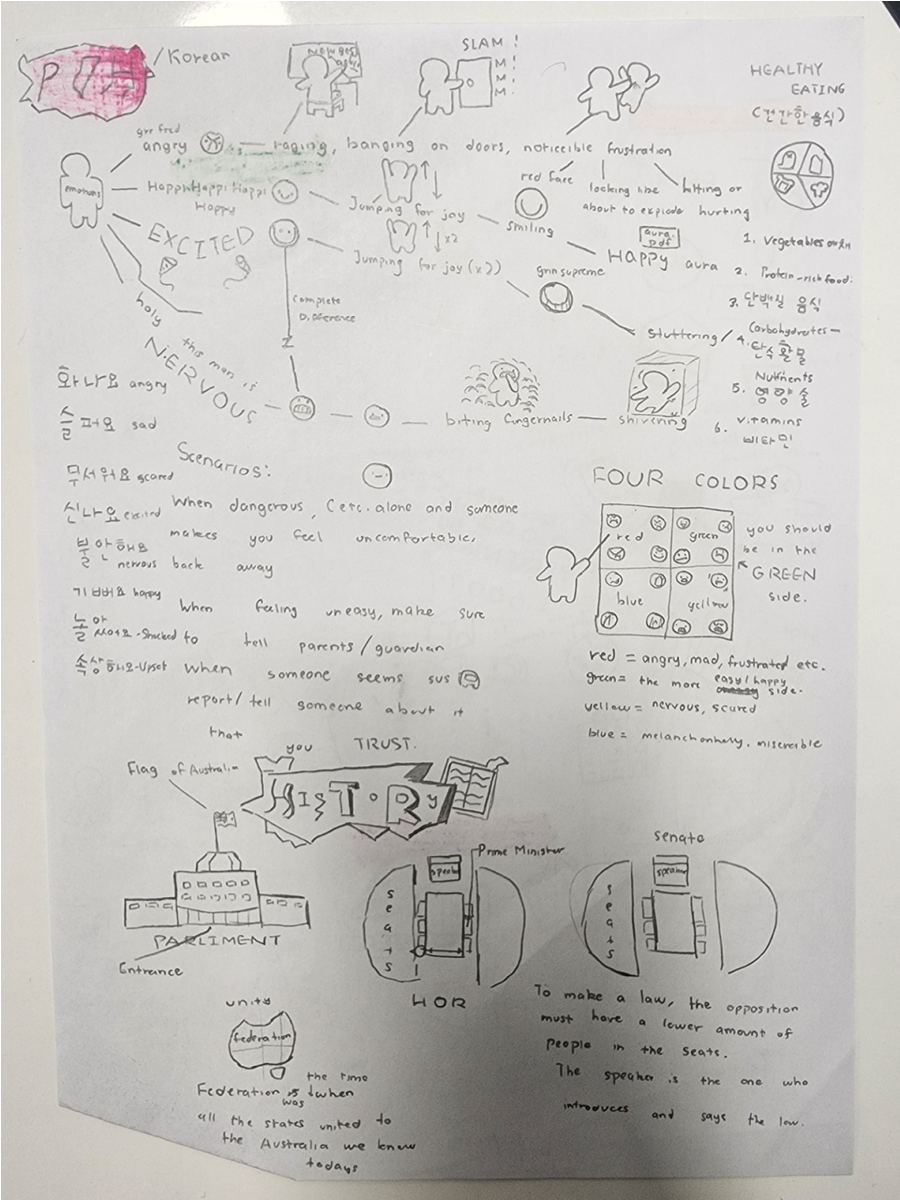 PDH / Korean
SLAM !
M M M !
HEALTHY
EATING
(건간한 음식)
grr fred
angry
raging, banging on doors, noticible frustration
emotions
Happi Happi Happi
Happy
Jumping for joy
smiling
red face
looking like
about to explode
hitting or
hurting
aura.
pdf
Happy aura
EXCITED
x2
Jumping for joy (x2)
grin supreme
stuttering /
complete
Difference
holy
this man is
NERVOUS
biting fingernails
shivering
1. Vegetables
2. Protein-rich food:
3. 단백질 음식
4. Carbohydrates -
탄수화물
5. Nutrients
영양솔
6. vitamins
비타민
화나요 angry
슬퍼요 sad
무서워요 scared
신나요 excited
불안해요
nervous
기뻐요 happy
놀아
샤어요 - Shocked
속상해요 - Upset
Scenarios:
When dangerous, (etc. alone and someone
makes you feel uncomfortable,
back away
When feeling uneasy, make sure
to tell parents / guardian
when someone seems sus
report / tell someone about it
that you TRUST.
FOUR COLORS
red
green
blue
yellow
you should
be in the
GREEN
side.
red = angry, mad, frustrated etc.
green = the more easy / happy side.
yellow = nervous, scared
blue = melanchonhely, miserable
Flag of Australia
HISTORY
PARLIMENT
Entrance
speaker
Prime Minister
seats
HOR
Senate
speaker
seats
unity
federation
Federation was the time when
all the states united to
the Australia we know
todays
To make a law, the opposition
must have a lower amount of
people in the seats.
The speaker is the one who
introduces and says the law.